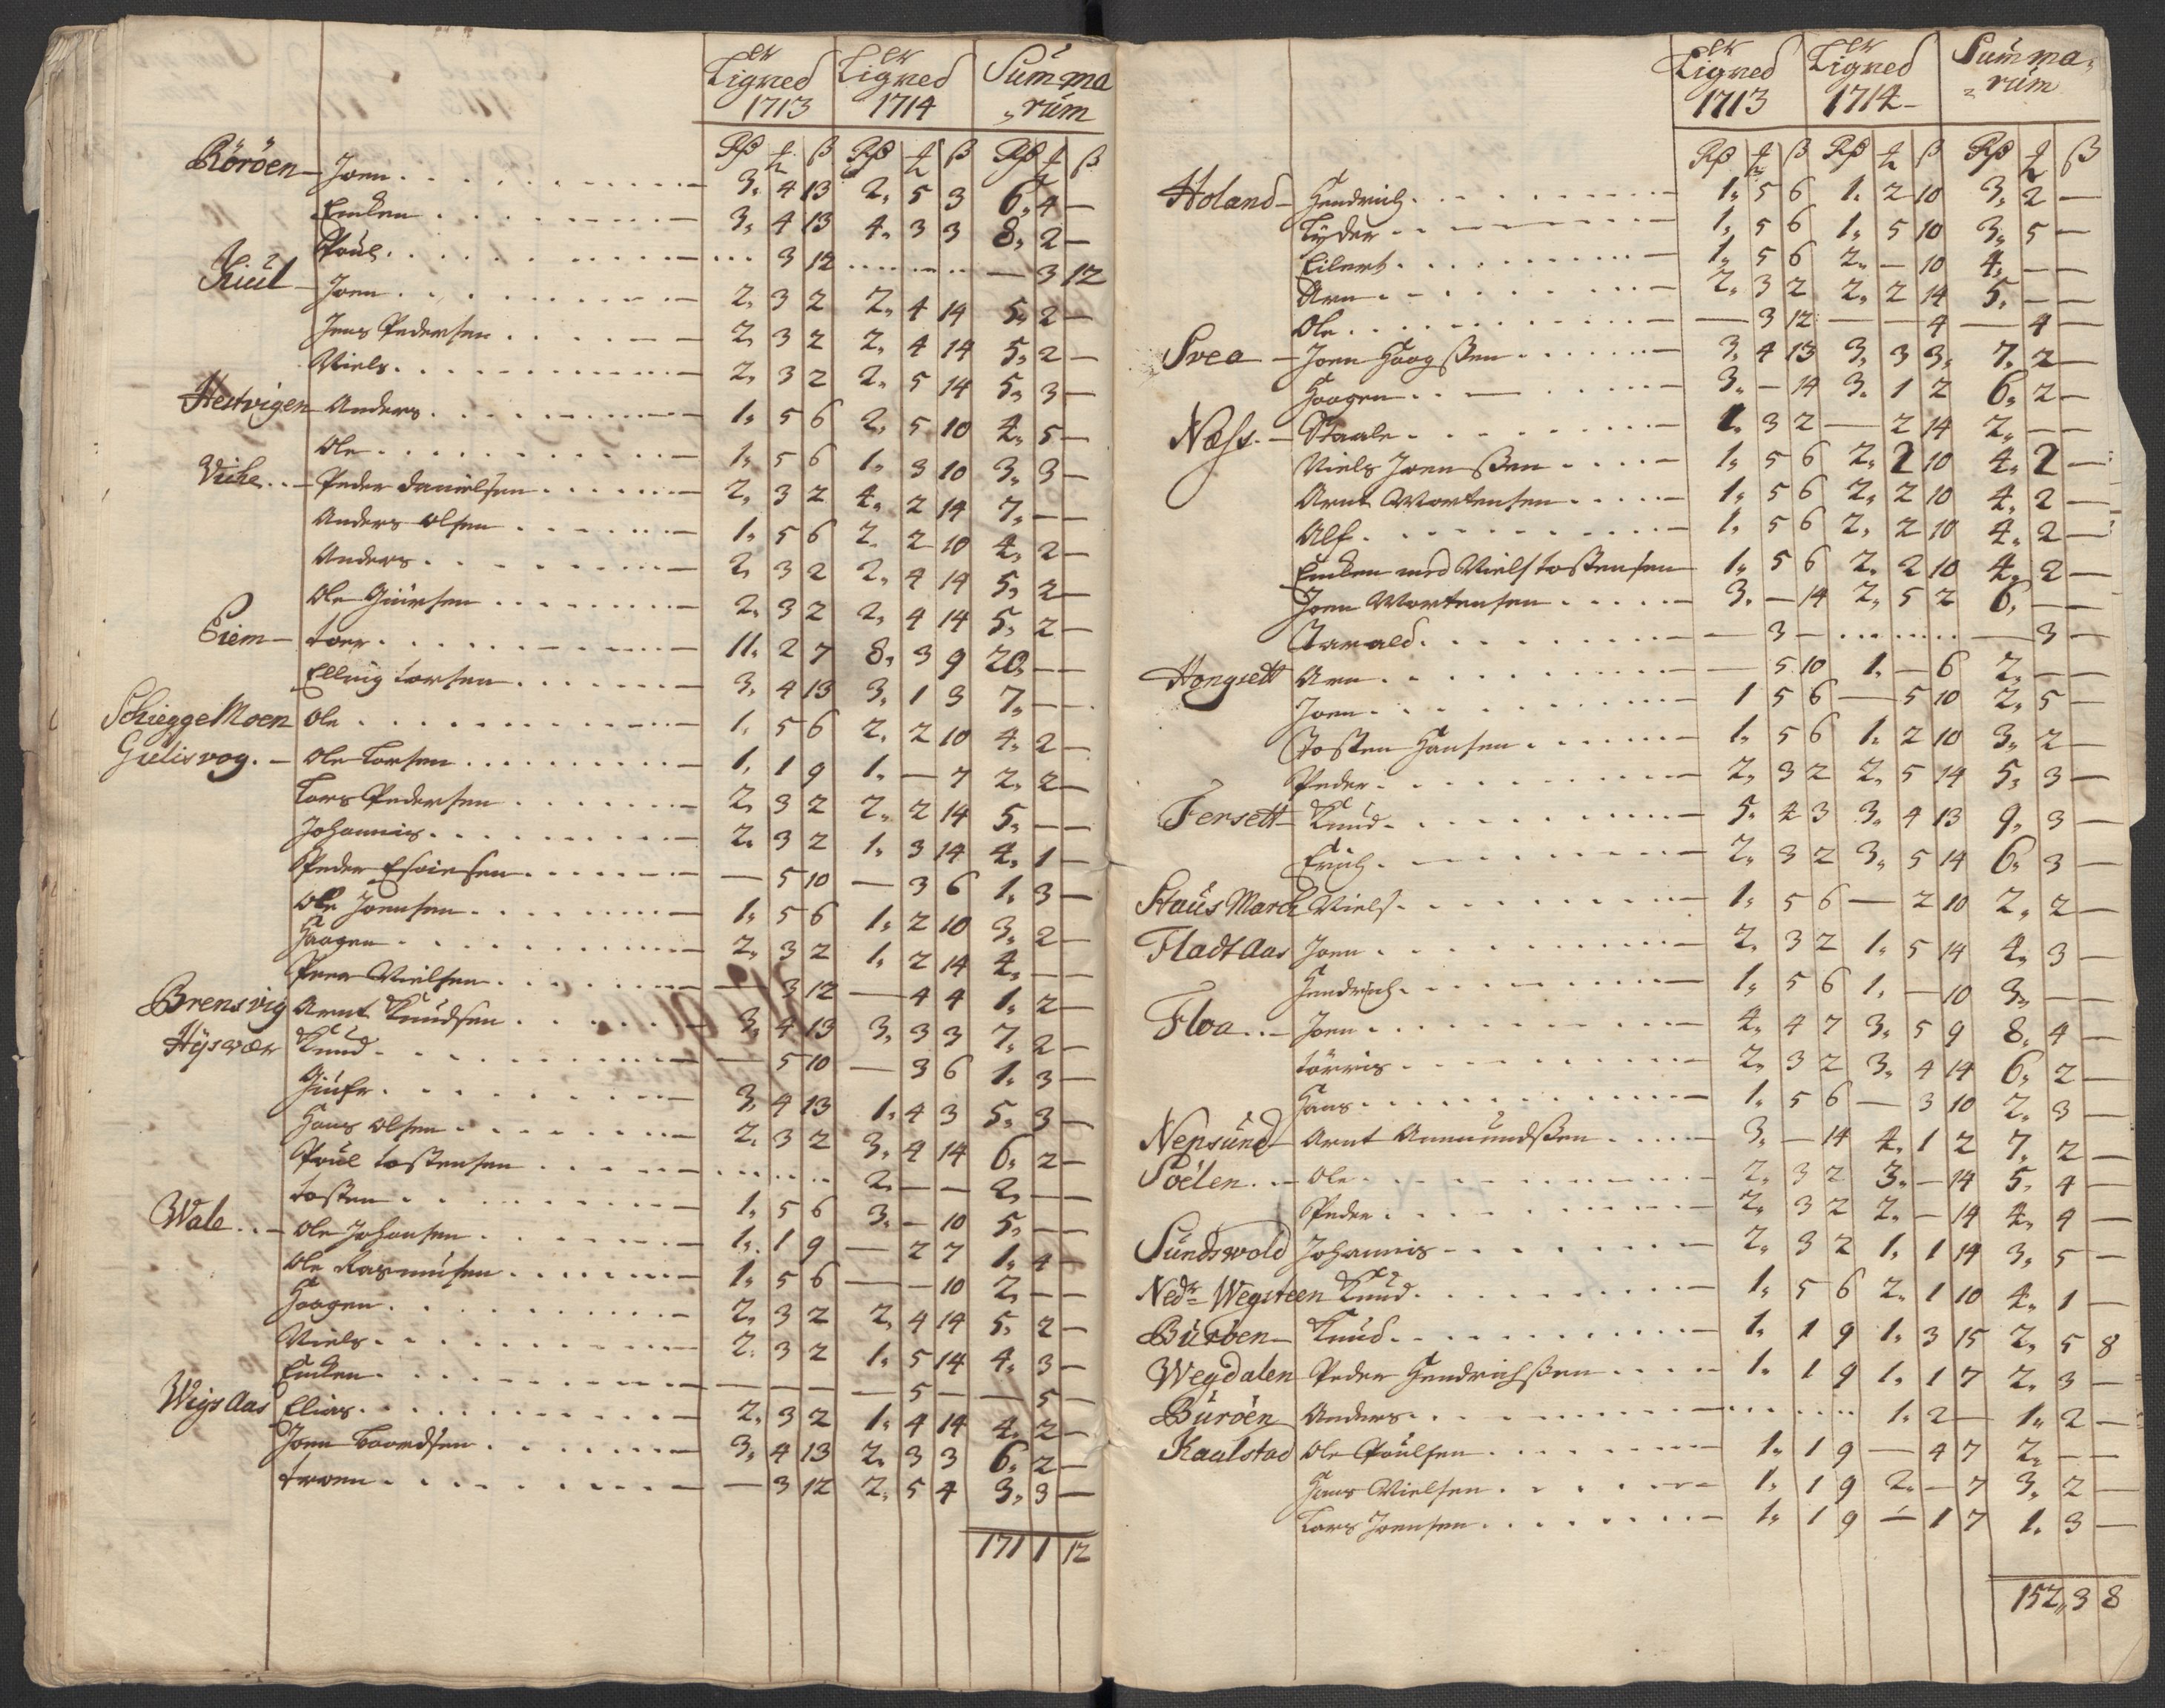 er er
Ligned Ligned Summa
1713 1714 „rum
Rd ₰ ß Rd ₰ ß Rd ₰ ß
Rörøen – Joen . . . 3. 4 13 2. 5 3 6. 4 —
Encken . . . 3. 4 13 4. 3 3 8. 2 —
Poul . . . 3 12 . . . — 3 12
Kiül – Joen . . . 2. 3 2 2. 4 14 5. 2 —
Jens Pedersen . . . 2. 3 2 2. 4 14 5. 2 —
Niels . . . 2. 3 2 2. 5 14 5. 3 —
Hestvigen Anders . . . 1. 5 6 2. 5 10 4. 5 —
Ole . . . 1. 5 6 1. 3 10 3. 3 —
Viche . . – Peder Danielsen . . . 2. 3 2 4. 2 14 7. — —
Anders Olsen . . . 1. 5 6 2. 2 10 4. 2 —
Anders . . . 2. 3 2 2. 4 14 5. 2 —
Ole Giürsen . . . 2. 3 2 2. 4 14 5. 2 —
Eiem – Toer . . . 11. 2 7 8. 3 9 20. — —
Elling Torsen . . . 3. 4 13 3. 1 3 7. — —
Schiegge Moen Ole . . . 1. 5 6 2. 2 10 4. 2 —
Gielisvog. – Ole Larsen . . . 1. 1 9 1. — 7 2. 2 —
Lars Pedersen . . . 2. 3 2 2. 2 14 5. — —
Johannis . . . 2. 3 2 1. 3 14 4. 1 —
Peder . . . — 5 10 — 3 6 1. 3 —
Ole Joensen . . . 1. 5 6 1. 2 10 3. 2 —
Haagen . . . 2. 3 2 1. 2 14 4. — —
Peer Nielsen . . . — 3 12 — 4 4 1. 2 —
Brensvig Arnt Knudsen . . . 3. 4 13 3. 3 3 7. 2 —
Hysvær Knud . . . — 5 10 — 3 6 1. 3 —
Giufe . . . 3. 4 13 1. 4 3 5. 3 —
Hans Olsen . . . 2. 3 2 3. 4 14 6. 2 —
Poul Tostensen . . . 2. — — 2. — —
Tosten . . . 1. 5 6 3. — 10 5. — —
Wale . . – Ole Johansen . . . 1. 1 9 — 2 7 1. 4 —
Ole Rasmusen . . . 1. 5 6 — — 10 2. — —
Haagen . . . 2. 3 2 2. 4 14 5. 2 —
Niels . . . 2. 3 2 1. 5 14 4. 3 —
Encken . . . — — — — 5 — — 5 —
Wigs Aas Elias . . . 2. 3 2 1. 4 14 4. 2 —
Joen Baardsen . . . 3. 4 13 2. 3 3 6. 2 —
Troen . . . — 3 12 2. 5 4 3. 3 —
171 1 12
er er
Ligned Ligned Summa„
1713 1714 – „rum
Rd ₰ ß Rd ₰ ß Rd ₰ ß
Holand – Hendrich . . . 1. 5 6 1. 2 10 3. 2 —
Lyder . . . 1. 5 6 1. 5 10 3. 5 —
Eilert . . . 1. 5 6 2. — 10 4. — —
Arn . . . 2. 3 2 2. 2 14 5. — —
Ole . . . — 3 12 — — 4 — 4 —
Svea – Joen Haagssen . . . 3. 4 13 3. 3 3. 7. 2 —
Haagen . . . 3. — 14 3. 1 2 6. 2 —
Næss. – Staale . . . 1. 3 2 — 2 14 2. — —
Niels Joenssen . . . 1. 5 6 2. 2 10 4. 2 —
Arnt Mortensen . . . 1. 5 6 2. 2 10 4. 2 —
Alf . . . 1. 5 6 2. 2 10 4. 2 —
Encken med Niels Tostensen 1. 5 6 2. 2 10 4. 2 —
Joen Mortensen . . . 3. — 14 2. 5 2 6. — —
Harald . . . — 3 — . . . — 3 —
Hongsett Arn . . . — 5 10 1. — 6 2. — —
Joen . . . 1 5 6 — 5 10 2. 5 —
Tosten Hansen . . . 1. 5 6 1. 2 10 3. 2 —
Peder . . . 2. 3 2 2. 5 14 5. 3 —
Fersett – Knud . . . 5. 4 3 3. 4 13 9. 3 —
Erich . . . 2. 3 2 3. 5 14 6. 3 —
Staus March Niels . . . 1. 5 6 — 2 10 2. 2 —
Fladt Aas Joen . . . 2. 3 2 1. 5 14 4. 3 —
Hendrich . . . 1. 5 6 1. — 10 3. — —
Floa . . – Joen . . . 4. 4 7 3. 5 9 8. 4 —
Törris . . . 2. 3 2 3. 4 14 6. 2 —
Hans . . . 1. 5 6 — 3 10 2. 3 —
Nepsund – Arnt Amundssen . . . 3. — 14 4. 1 2 7. 2 —
Søelen . . – Ole . . . 2. 3 2 3. — 14 5. 4 —
Peder . . . 2. 3 2 2. — 14 4. 4 —
Sundswold Johannis – . . . 2. 3 2 1. 1 14 3. 5 —
Nedr Wegsteen Knud . . . 1. 5 6 2. 1 10 4. 1 —
Büröen – Knud . . . 1. 1 9 1. 3 15 2. 5 8
Wegdalen Peder Hendrichssen . . . 1. 1 9 1. 1 7 2. 3 —
Büröen Anders . . . 1. 2 — 1. 2 —
Kaalstad Ole Poulsen . . . 1. 1 9 — 4 7 2. — —
Hans Nielsen . . . 1. 1 9 2. — 7 3. 2 —
Lars Joensen . . . 1. 1 9 — 1 7 1. 3 —
152„ 3 8